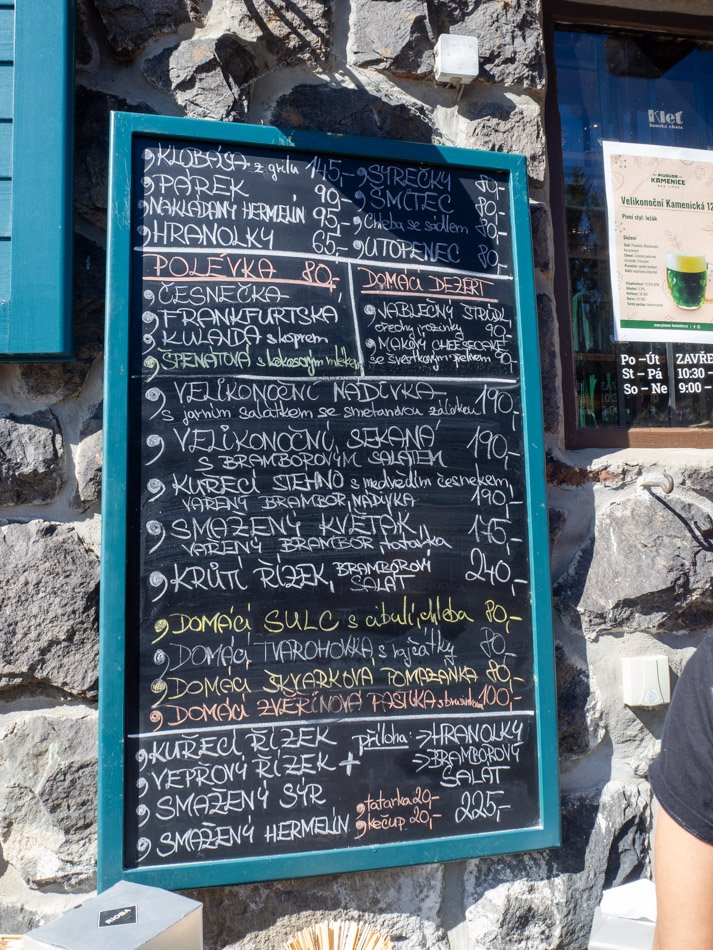 KLOBÁSA z grilu 145,-
PÁREK 90,-
NAKLÁDANÝ HERMELÍN 95,-
HRANOLKY 65,-
SYREČKY 80,-
ŠMITEC 80,-
Chleba se sádlem 80,-
UTOPENEC 80,-
POLÉVKA 80,-
ČESNEČKA
FRANKFURTSKÁ
KULAJDA s koprem
ŠPENÁTOVÁ s kokosovým mlékem
DOMÁCÍ DEZERT
JABLEČNÝ ŠTRŮDL
ořechy, rozinky 90,-
MAKOVÝ CHEESECAKE
se švestkovým přelivem 90,-
VELIKONOČNÍ NÁDIVKA
s jarním salátkem se smetanovou zálivkou 190,-
VELIKONOČNÍ SEKANÁ 190,-
S BRAMBOROVÝM SALÁTEM
KUŘECÍ STEHNO s medvědím česnekem,
VAŘENÝ BRAMBOR, NÁDIVKA 190,-
SMAŽENÝ KVĚTÁK 175,-
VAŘENÝ BRAMBOR, tatarka
KRŮTÍ ŘÍZEK, BRAMBOROVÝ SALÁT 240,-
DOMÁCÍ SULC s cibulí, chleba 80,-
DOMÁCÍ TVAROHOVKA s rajčátky 80,-
DOMÁCÍ ŠKVARKOVÁ POMAZÁNKA 80,-
DOMÁCÍ ZVĚŘINOVÁ PAŠTIKA s brusinkami 100,-
KUŘECÍ ŘÍZEK
VEPŘOVÝ ŘÍZEK +
SMAŽENÝ SÝR
SMAŽENÝ HERMELÍN
příloha: → HRANOLKY
→ BRAMBOROVÝ
SALÁT
tatarka 20,-
kečup 20,-
225,-
Kleť
horská chata
KAMENICE
Velikonoční Kamenická 12
Pivní styl: ležák
Po - Út ZAVŘE
St - Pá 10:30 -
So - Ne 9:00 -